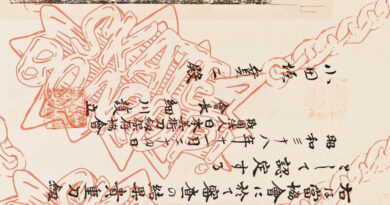 右は當協會に於て審査の結果貴重刀剣
として認定する
昭和三十八年
財團法人日本美術刀剣保存協會
會長 細川護立
小田 殿